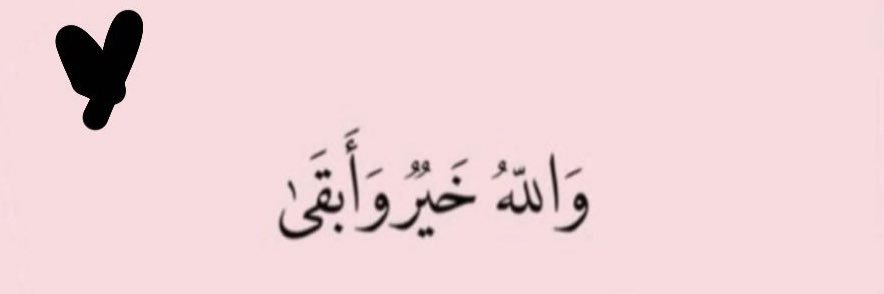 وَاللَّهُ خَيْرٌ وَأَبْقَىٰ